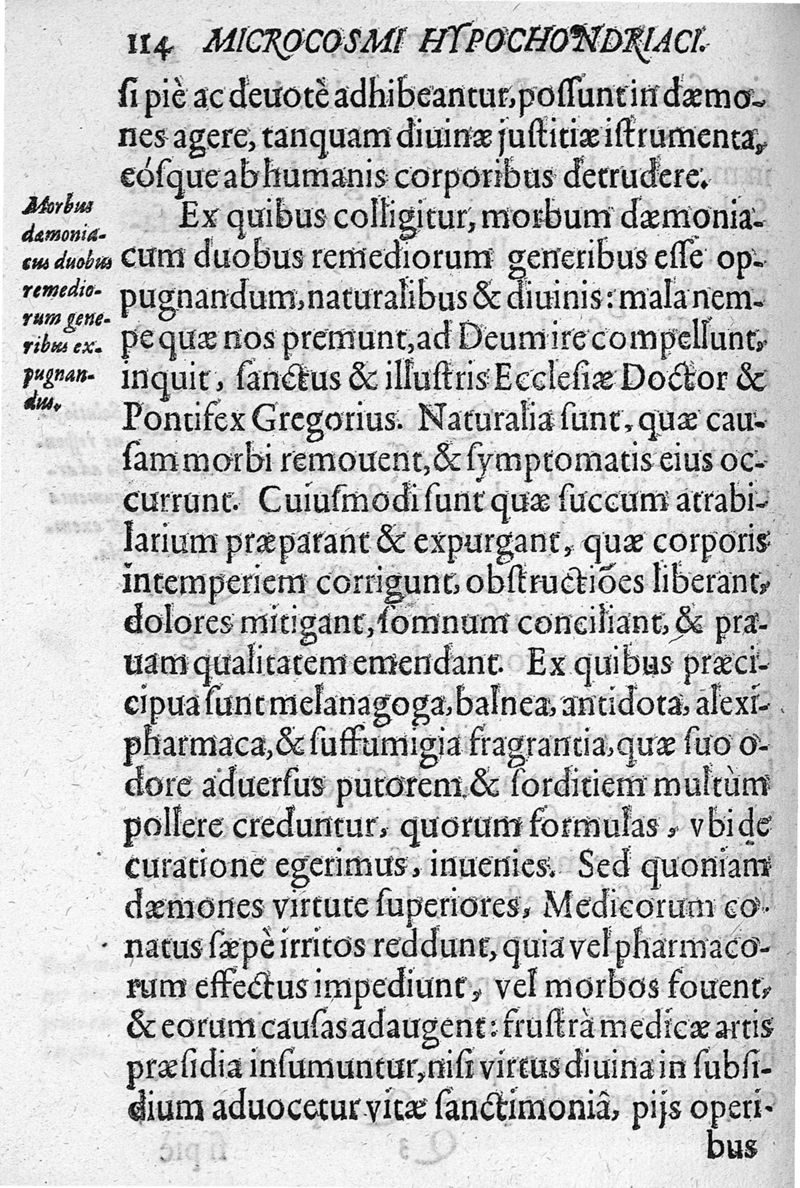 114 MICROCOSMI HYPOCHONDRIACI.
si piè ac deuotè adhibeantur, possunt in dæmo-
nes agere, tanquam diuinæ justitiæ istrumenta,
eósque ab humanis corporibus detrudere.
Morbus
dæmonia-
cus duobus
remedio-
rum gene-
ribus ex-
pugnan-
dus.
Ex quibus colligitur, morbum dæmonia-
cum duobus remediorum generibus esse op-
pugnandum, naturalibus & diuinis: mala nem-
pe quæ nos premunt, ad Deum ire compellunt,
inquit, sanctus & illustris Ecclesiæ Doctor &
Pontifex Gregorius. Naturalia sunt, quæ cau-
sam morbi remouent, & symptomatis eius oc-
currunt. Cuiusmodi sunt quæ succum atrabi-
larium præparant & expurgant, quæ corporis
intemperiem corrigunt, obstructiões liberant,
dolores mitigant, somnum conciliant, & pra-
uam qualitatem emendant. Ex quibus præci-
cipua sunt melanagoga, balnea, antidota, alexi-
pharmaca, & suffumigia fragrantia, quæ suo o-
dore aduersus putorem & sorditiem multùm
pollere creduntur, quorum formulas, vbi de
curatione egerimus, inuenies. Sed quoniam
dæmones virtute superiores, Medicorum co-
natus sæpè irritos reddunt, quia vel pharmaco-
rum effectus impediunt, vel morbos fouent,
& eorum causas adaugent: frustrà medicæ artis
præsidia insumuntur, nisi virtus diuina in subsi-
dium aduocetur vitæ sanctimoniâ, pijs operi-
bus